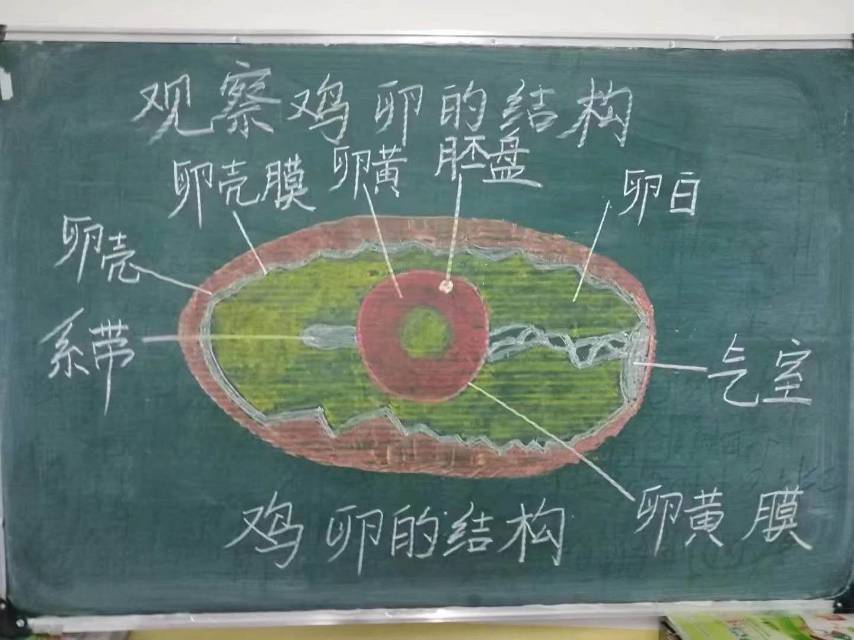 观察鸡卵的结构
卵壳膜
卵黄
胚盘
卵白
卵壳
系带
气室
卵黄膜
鸡卵的结构